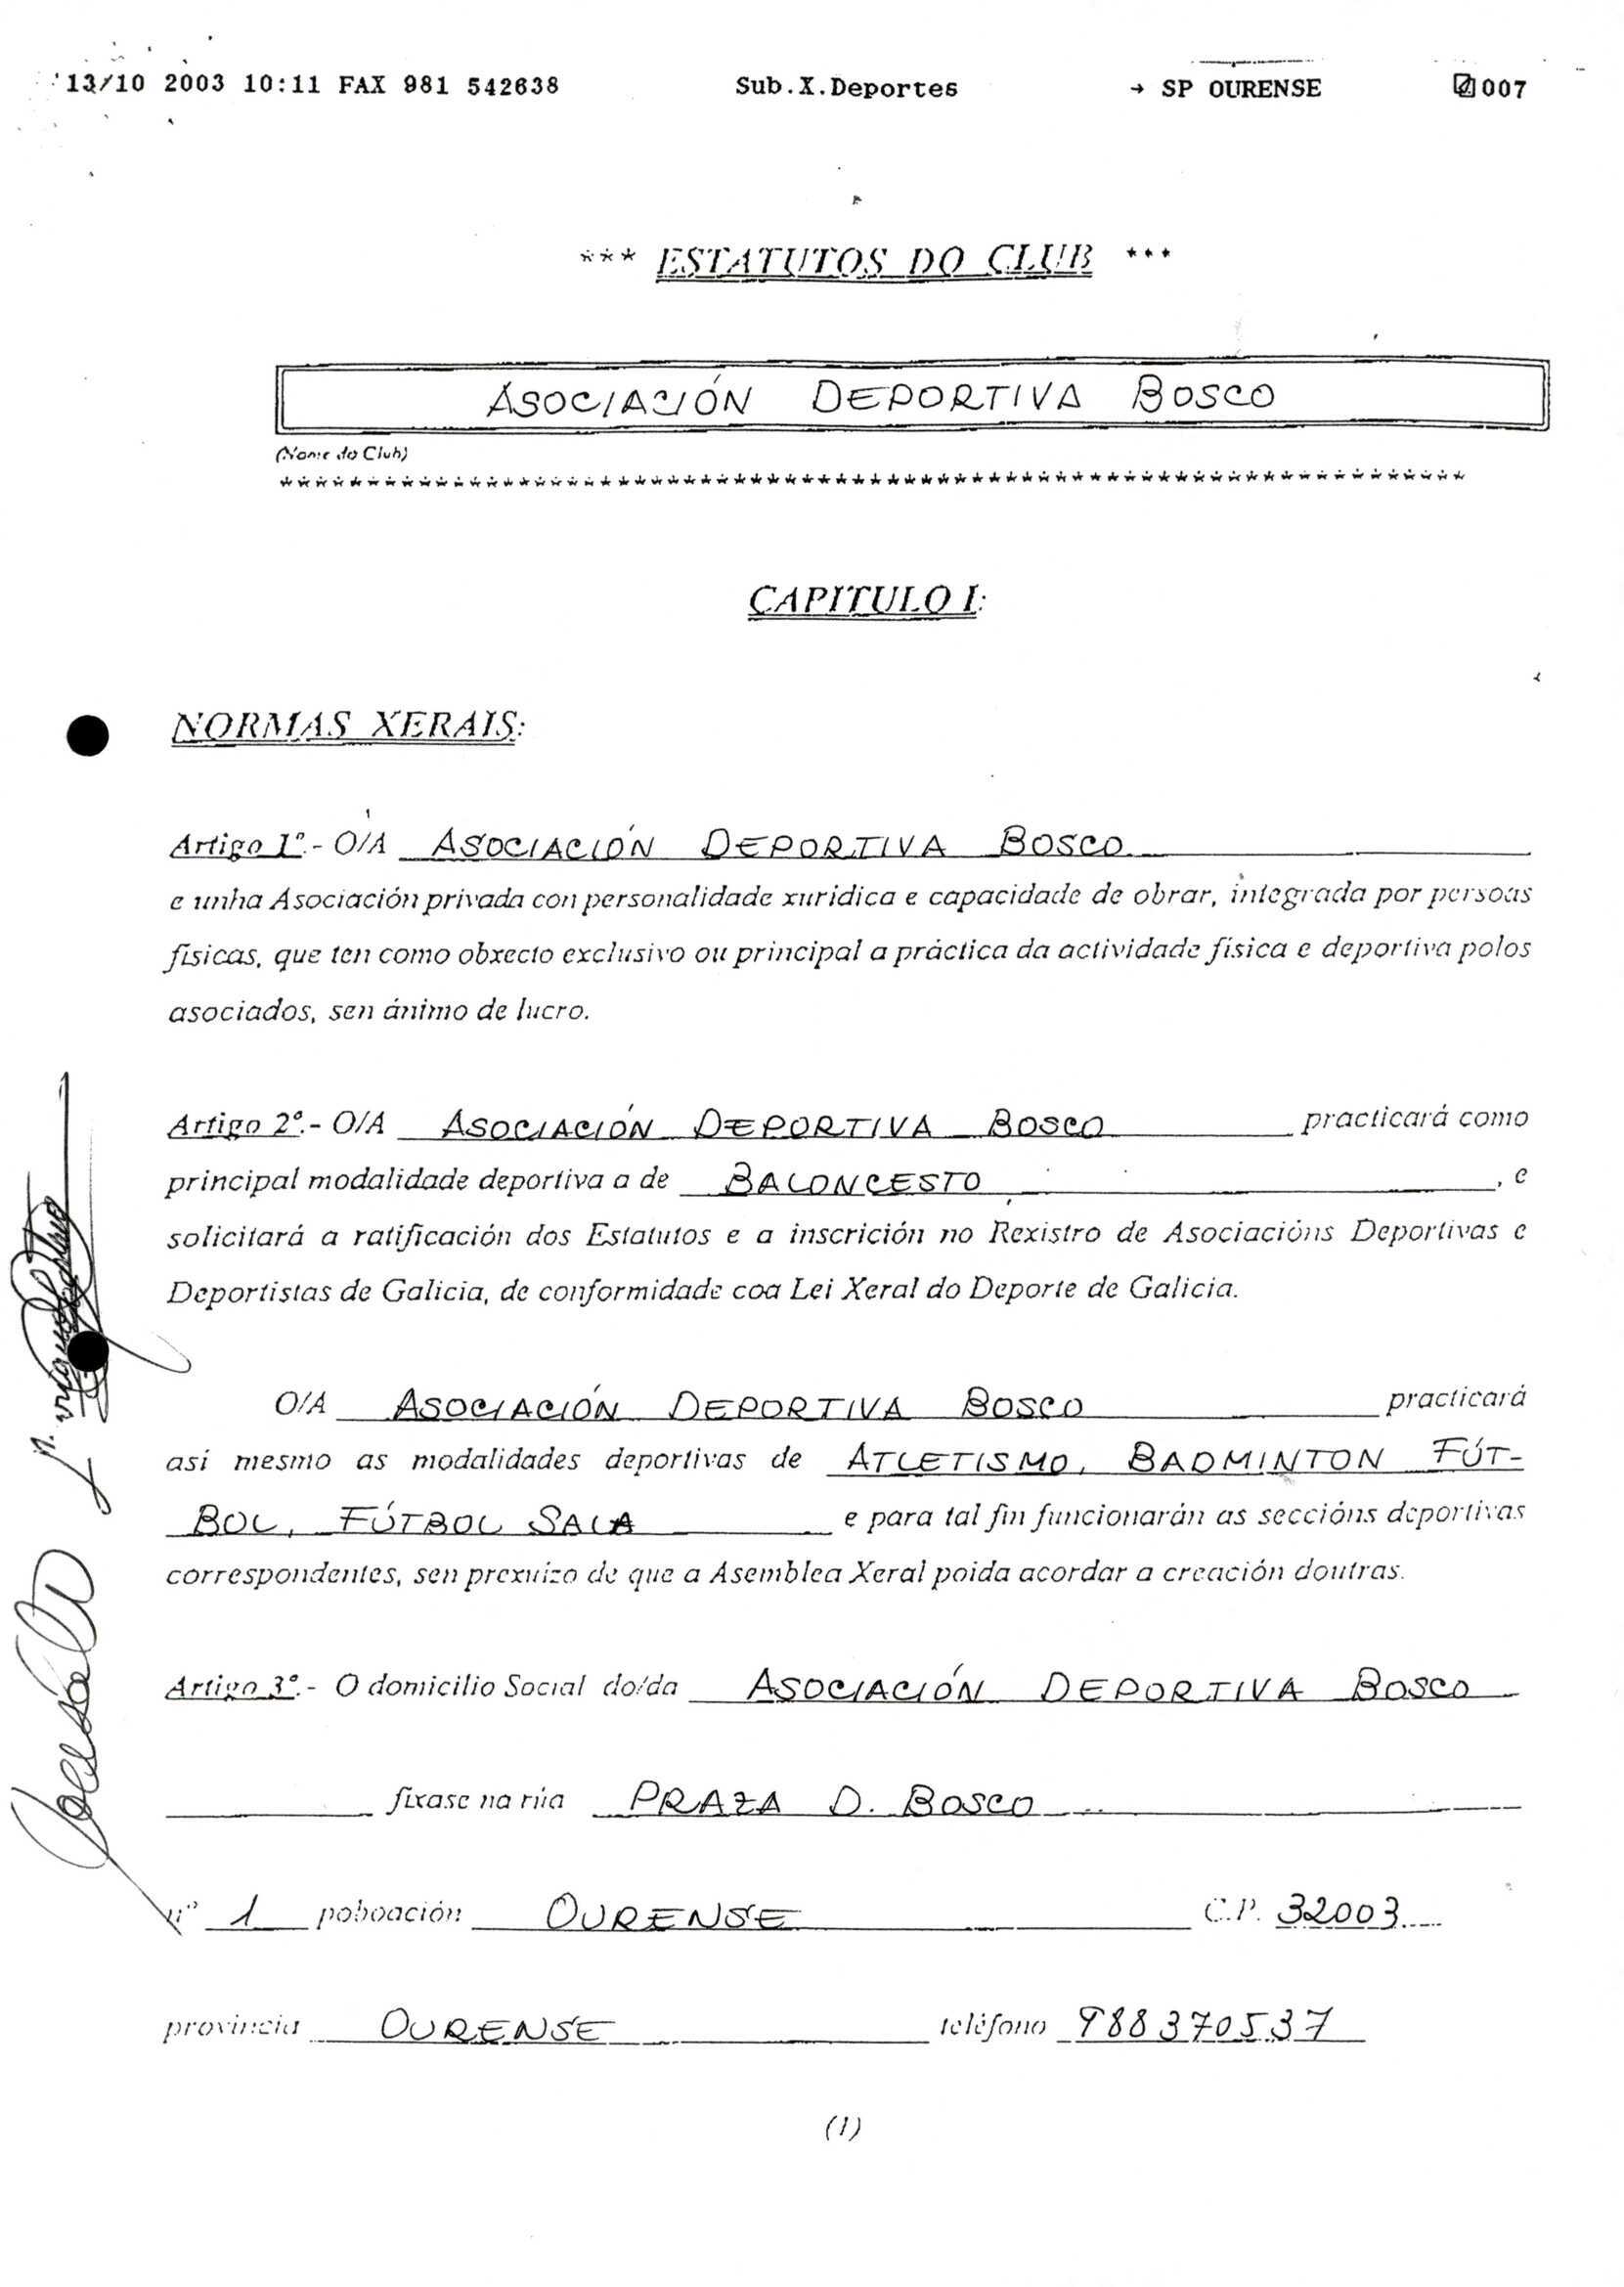 13/10 2003 10:11 FAX 981 542638 Sub.X.Deportes → SP OURENSE 007
*** ESTATUTOS DO CLUB ***
ASOCIACIÓN DEPORTIVA BOSCO
(Nome do Club)
CAPITULO I:
NORMAS XERAIS:
Artigo 1º.- O/A ASOCIACIÓN DEPORTIVA BOSCO
e unha Asociación privada con personalidade xuridica e capacidade de obrar, integrada por persoas
físicas, que ten como obxecto exclusivo ou principal a práctica da actividade física e deportiva polos
asociados, sen ánimo de lucro.
Artigo 2º.- O/A ASOCIACIÓN DEPORTIVA BOSCO practicará como
principal modalidade deportiva a de BALONCESTO , e
solicitará a ratificación dos Estatutos e a inscrición no Rexistro de Asociacións Deportivas e
Deportistas de Galicia, de conformidade coa Lei Xeral do Deporte de Galicia.
O/A ASOCIACIÓN DEPORTIVA BOSCO practicará
asi mesmo as modalidades deportivas de ATLETISMO, BADMINTON FÚT-
BOL, FÚTBOL SALA e para tal fin funcionarán as seccións deportivas
correspondentes, sen prexuizo de que a Asemblea Xeral poida acordar a creación doutras.
Artigo 3º.- O domicilio Social do/da ASOCIACIÓN DEPORTIVA BOSCO
fixase na rúa PRAZA D. BOSCO
nº 1 poboación OURENSE C.P. 32003
provincia OURENSE teléfono 988370537
(1)